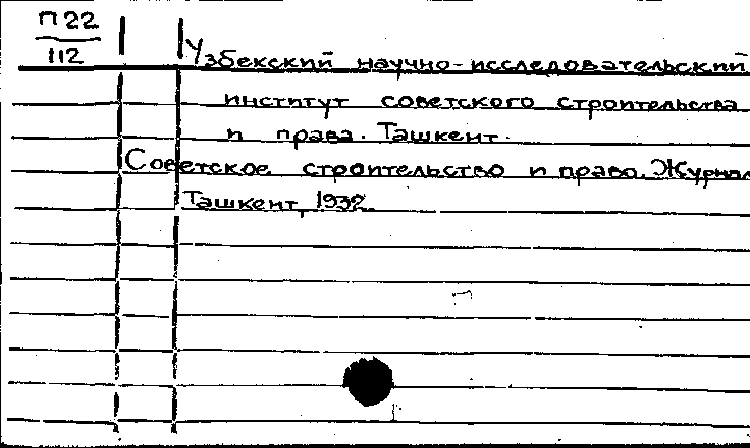 П 22
112
Узбекский научно-исследовательский
институт советского строительства
и права. Ташкент.
Советское строительство и право. Журнал
Ташкент, 1932.